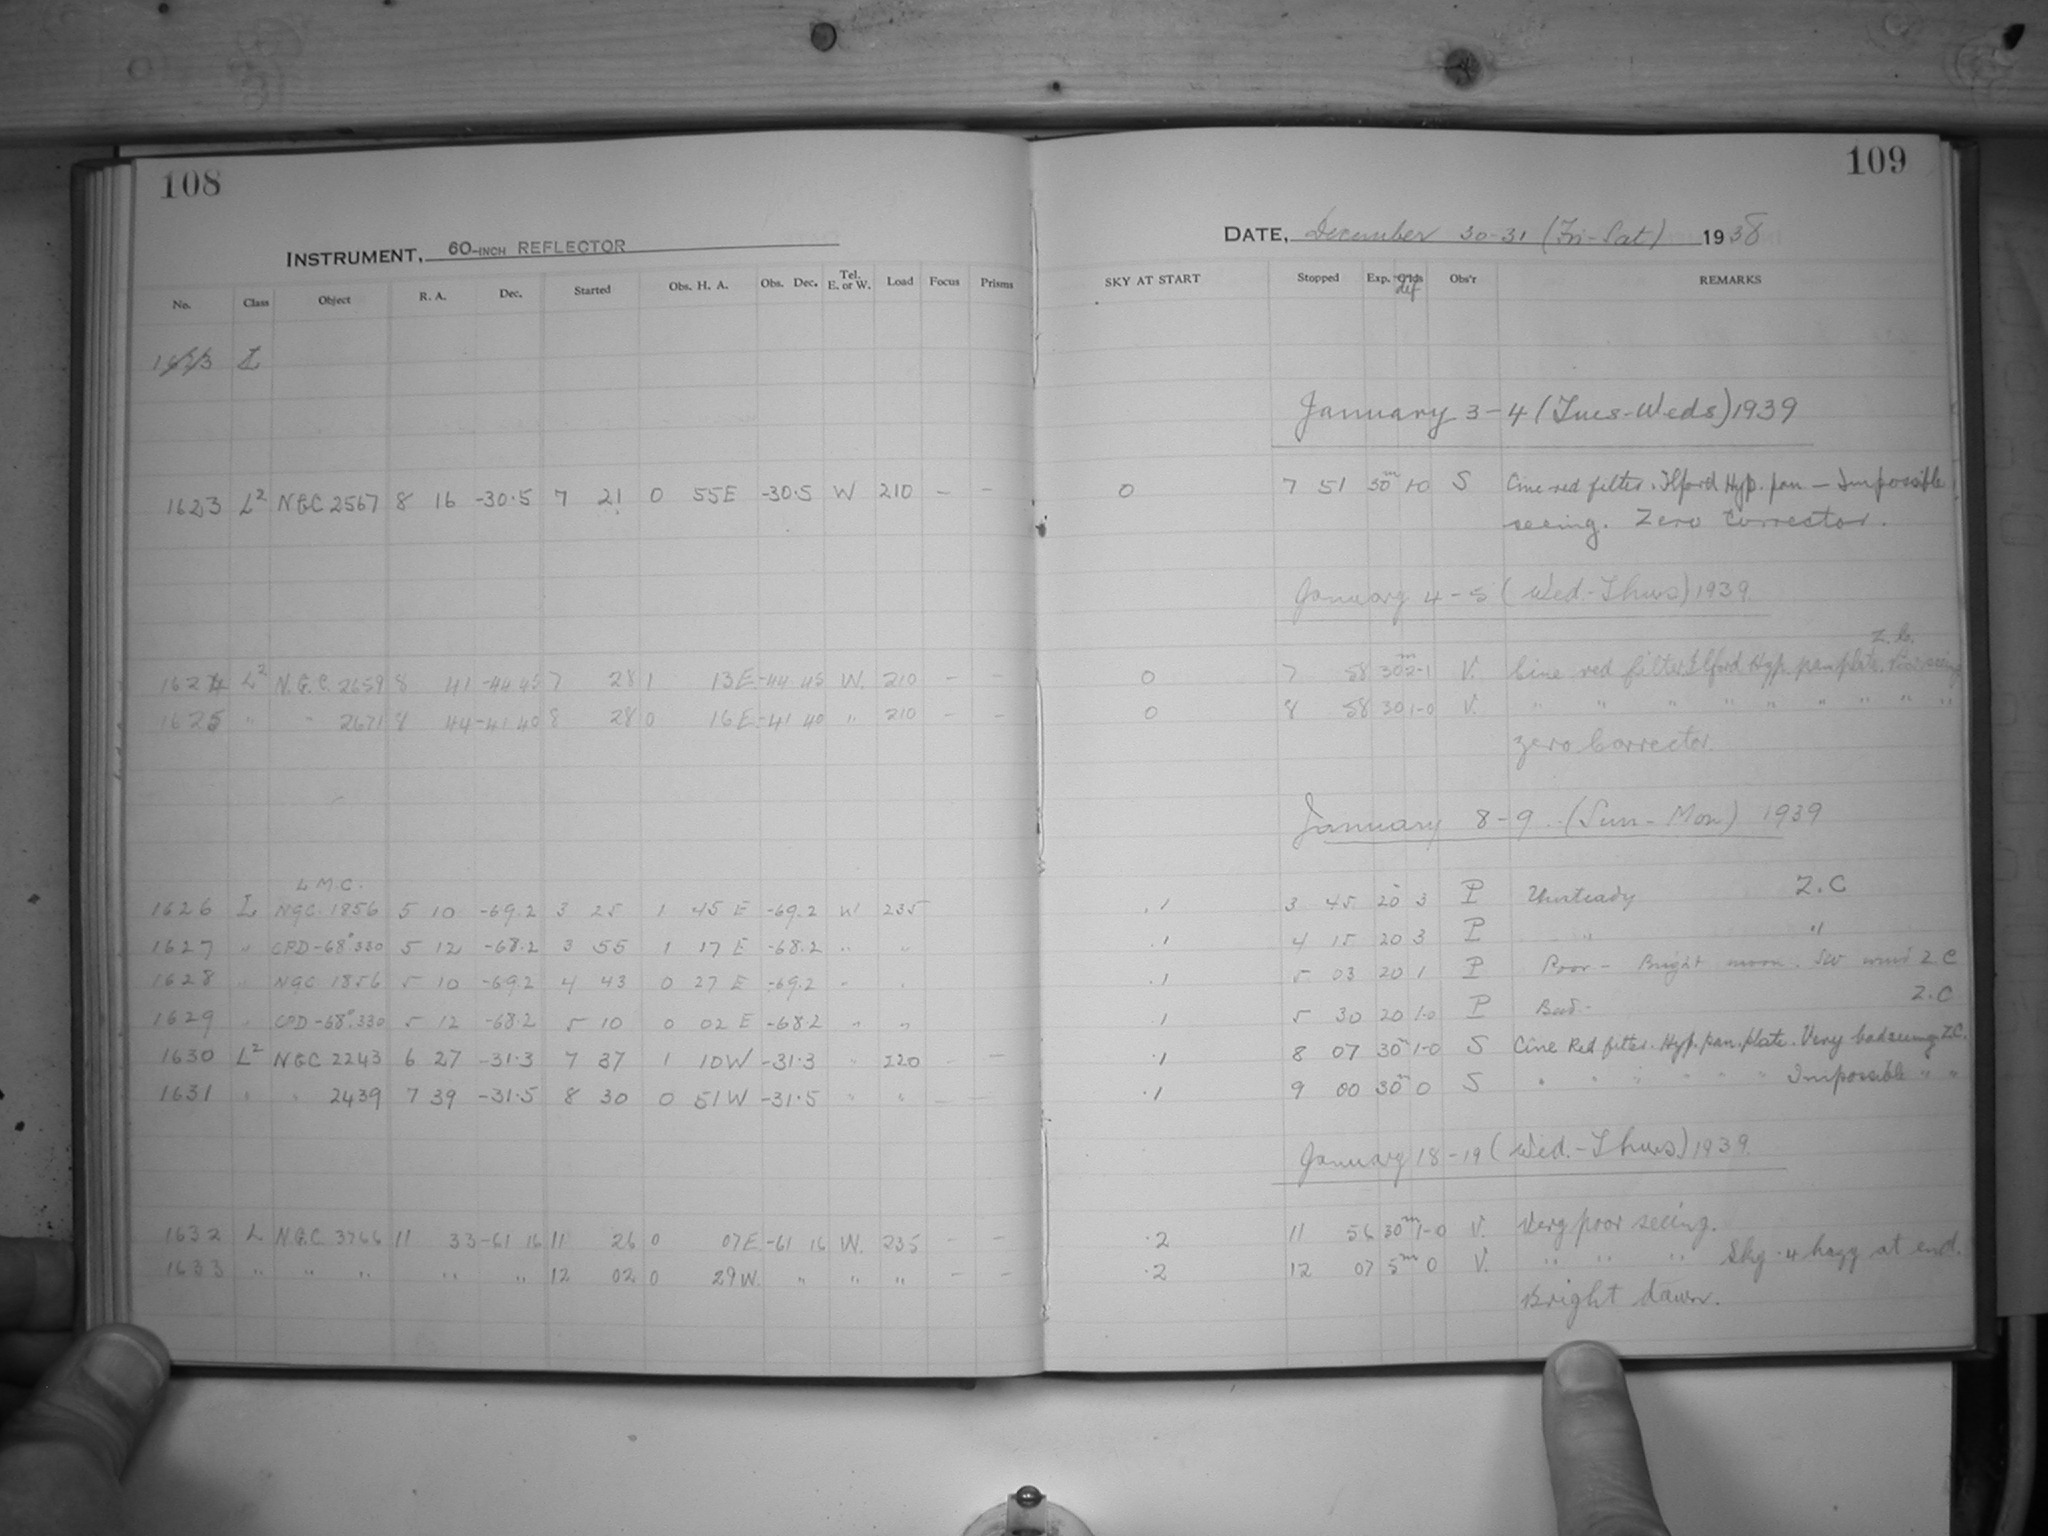 108
INSTRUMENT, 60-INCH REFLECTOR
No. Class Object R. A. Dec. Started Obs. H. A. Obs. Dec. Tel. E. or W. Load Focus Prisms
1623 L
1623 L² NGC 2567 8 16 -30.5 7 21 0 55E -30.5 W 210 — —
1624 L² N.G.C. 2659 8 41 -44 45 7 28 1 13E -44 45 W. 210 — —
1625 " " 2671 8 44 -41 40 8 28 0 16E -41 40 " 210 — —
L.M.C.
1626 L NGC 1856 5 10 -69.2 3 25 1 45 E -69.2 W 235
1627 " CPD -68°330 5 12 -68.2 3 55 1 17 E -68.2 " "
1628 " NGC 1856 5 10 -69.2 4 43 0 27 E -69.2 " "
1629 " CPD -68°330 5 12 -68.2 5 10 0 02 E -68.2 " "
1630 L² NGC 2243 6 27 -31.3 7 37 1 10W -31.3 " 220 — —
1631 " " 2439 7 39 -31.5 8 30 0 51W -31.5 " " — —
1632 L N.G.C. 3766 11 33 -61 16 11 26 0 07E -61 16 W. 235 — —
1633 " " " " " 12 02 0 29W. " " " — —
109
DATE, December 30-31 (Fri-Sat) 1938
SKY AT START Stopped Exp. def Obs'r REMARKS
January 3-4 (Tues-Weds) 1939
0 7 51 30ᵐ 1-0 S Cine red filter. Ilford Hyp. pan — Impossible
seeing. Zero Corrector.
January 4-5 (Wed.-Thurs) 1939
Z.C.
0 7 58 30ᵐ 2-1 V. Cine red filter. Ilford Hyp. pan plate. Poor seeing
0 8 58 30 1-0 V. " " " " " " " " "
Zero Corrector.
January 8-9 (Sun-Mon) 1939
.1 3 45 20 3 P Unsteady Z.C
.1 4 15 20 3 P " "
.1 5 03 20 1 P Poor - Bright moon. SW wind Z.C
.1 5 30 20 1-0 P Bad - Z.C
.1 8 07 30ᵐ 1-0 S Cine Red filter. Hyp. pan. plate. Very bad seeing Z.C.
.1 9 00 30ᵐ 0 S " " " " " " Impossible " "
January 18-19 (Wed.-Thurs) 1939
.2 11 56 30ᵐ 1-0 V. Very poor seeing.
.2 12 07 5ᵐ 0 V. " " " Sky .4 hazy at end.
Bright dawn.